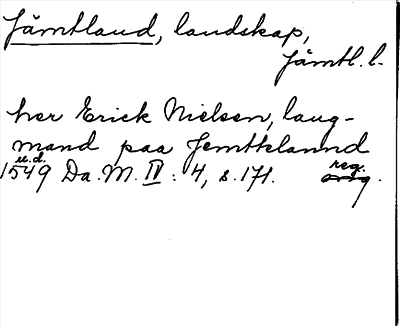 Jämtland, landskap,
Jämtl. l.
her Erick Nielsen, laug-
mand paa Jemttelannd
u.d.
1549 Da. M. IV : 4, s. 171. reg.
orig.